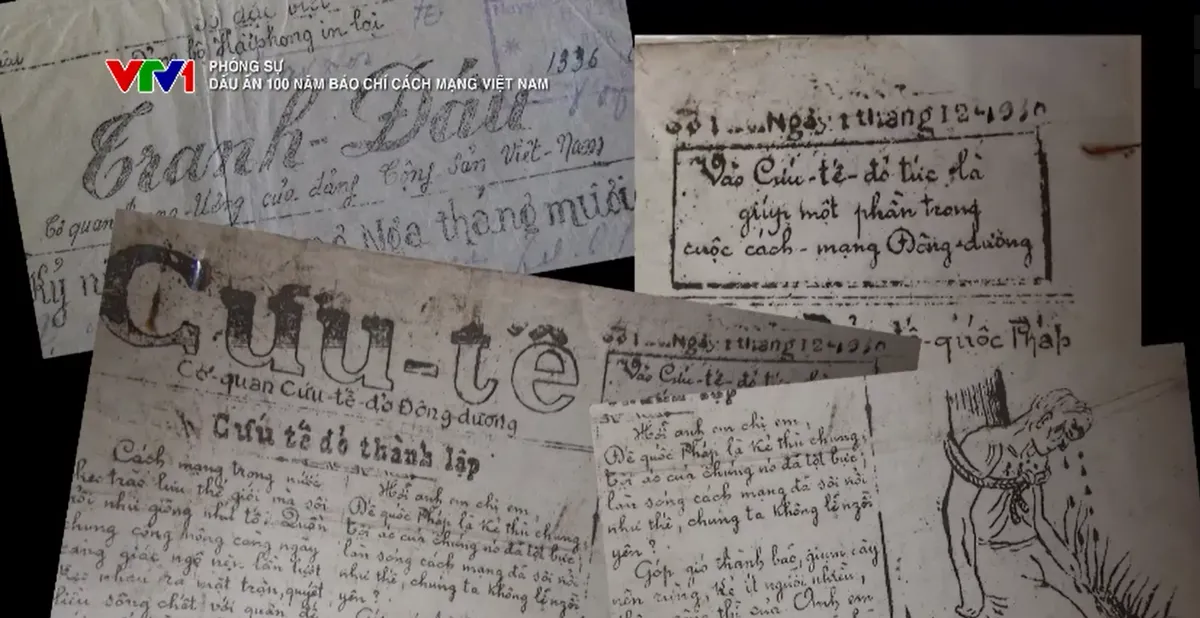 VTV1
PHÓNG SỰ
DẤU ẤN 100 NĂM BÁO CHÍ CÁCH MẠNG VIỆT NAM
bộ Hải phong in lại
1336
Tranh-Đấu
Cơ quan Trung-Ương của đảng Cộng Sản Việt-Nam
Nga tháng mười
Kỷ n
Số 1 Ngày 1 tháng 12-1930
Vào Cứu-tế-đỏ tức là
giúp một phần trong
cuộc cách-mạng Đông-dương
quốc Pháp
Cứu-tế
Cơ-quan Cứu-tế-đỏ Đông-dương
Cứu tế đỏ thành lập
Số 1 Ngày 1 tháng 12-1930
Vào Cứu-tế-đỏ
Cách mạng trong nước
theo trào lưu thế giới mà sôi
nổi như giông như tố. Quần
chung công nông càng ngày
càng giác ngộ
nhau ra mặt trận, quyết
sống chết với quân đế
Hỡi anh em chị em,
Đế quốc Pháp là kẻ thù chung,
tội ác của chúng nó đã tột bực,
làn sóng cách mạng đã sôi nổi
như thế, chúng ta không lẽ ngồi
yên?
Hỡi anh em chị em,
Đế quốc Pháp là kẻ thù chung,
tội ác của chúng nó đã tột bực,
làn sóng cách mạng đã sôi nổi
như thế, chúng ta không lẽ ngồi
yên?
Góp gió thành bão, gium cây
nên rừng, kẻ ít người nhiều,
Anh em